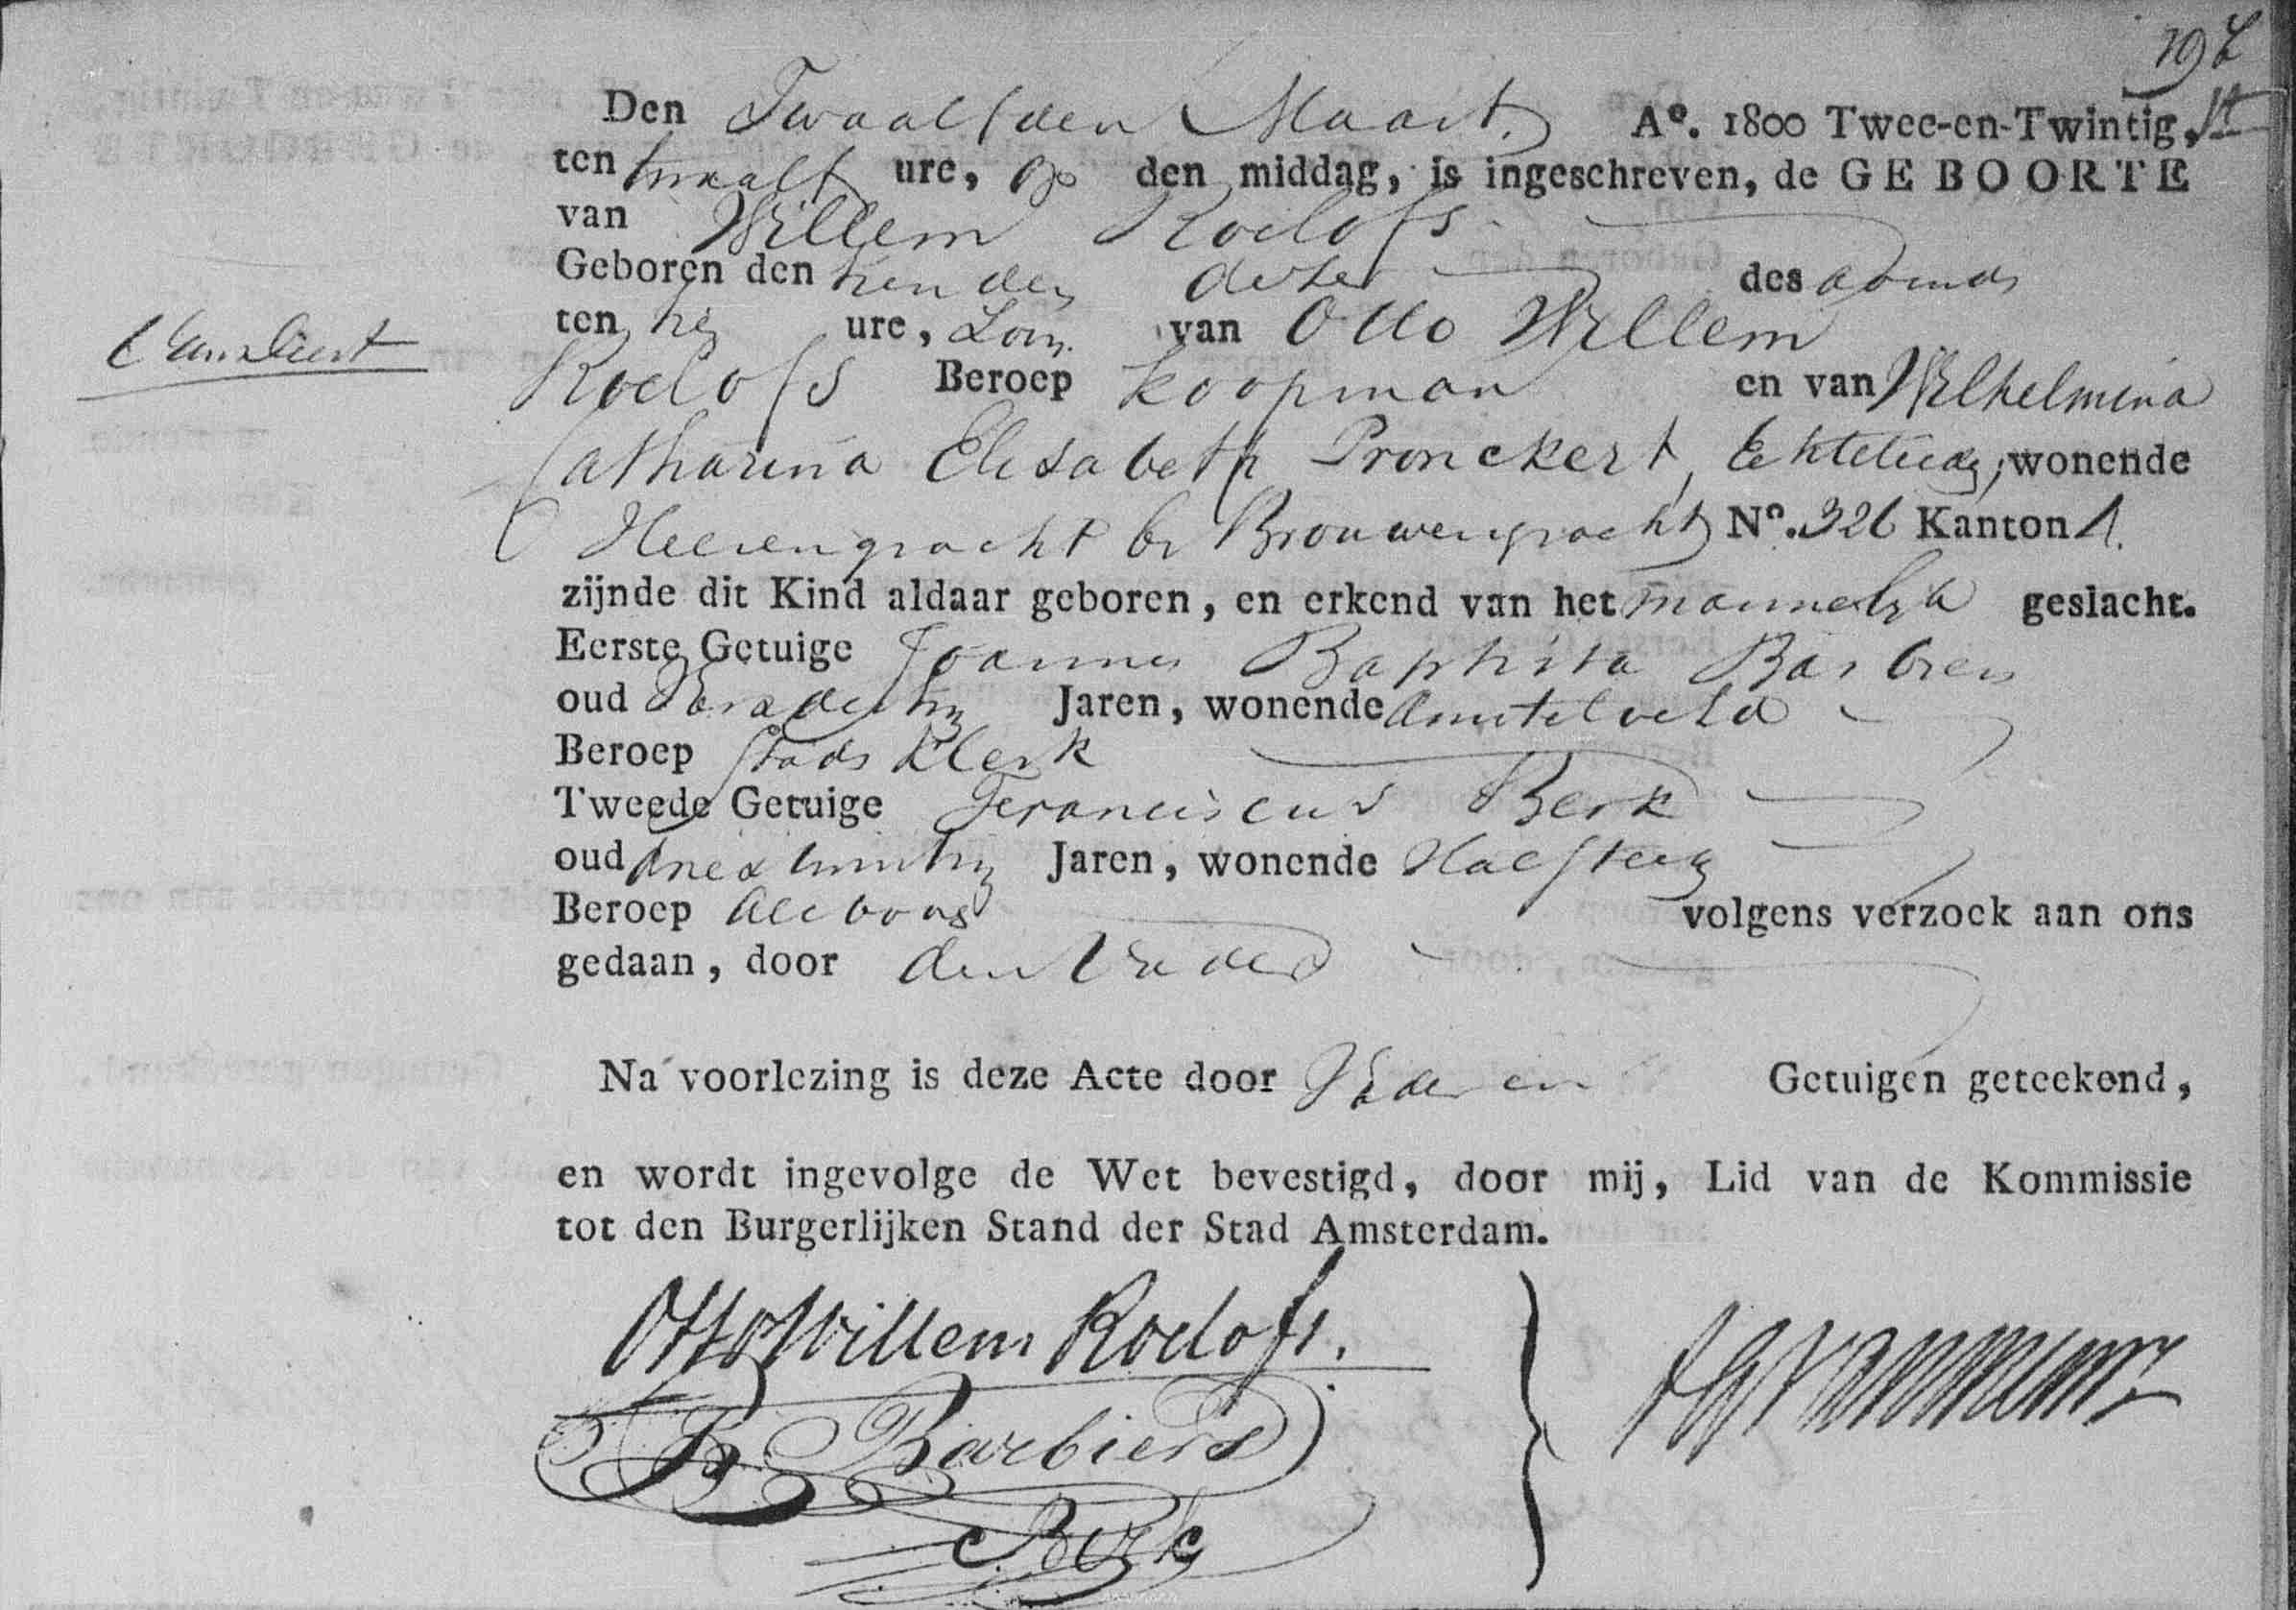 197
Den Twaalfden Maart. Aº. 1800 Twee-en-Twintig,
ten twaalf ure, op den middag, is ingeschreven, de GEBOORTE
van Willem Roelofs
Geboren den tienden dezer des avonds
ten ure, Zoon van Otto Willem
Roelofs Beroep Koopman en van Wilhelmina
Catharina Elisabeth Pronckert, Echtelieden, wonende
Heerengracht bij Brouwersgracht Nº. 326 Kanton 1.
zijnde dit Kind aldaar geboren, en erkend van het mannelijk geslacht.
Eerste Getuige Joannes Baptista Barbiers
oud Jaren, wonende Amstelveld
Beroep Stads Klerk
Tweede Getuige Franciscus Berk
oud Jaren, wonende Halsteeg
Beroep volgens verzoek aan ons
gedaan, door den Vader
Na voorlezing is deze Acte door Vader en Getuigen geteekend,
en wordt ingevolge de Wet bevestigd, door mij, Lid van de Kommissie
tot den Burgerlijken Stand der Stad Amsterdam.
Otto Willem Roelofs.
B Barbiers
Berk